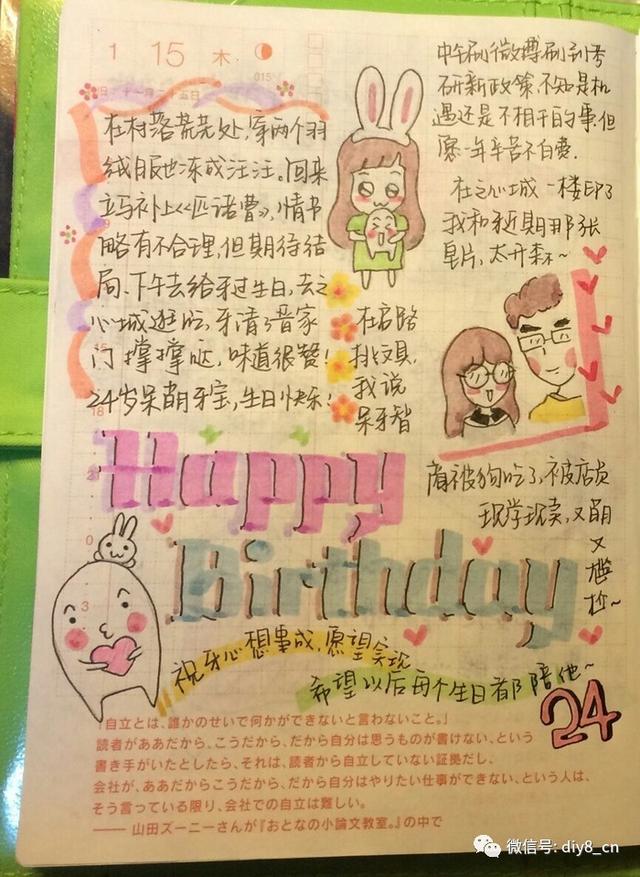 1 15 木
015
旧:十一月二十五日
在村落荒芜处,穿两个羽
绒服也冻成汪汪。回来
立马补上《匹诺曹》,情书
略有不合理,但期待结
局。下午去给牙过生日,去之
心城逛吃,牙请了晋家
门撑撑哒,味道很赞!
24岁呆萌牙宝,生日快乐!
中午刷微博刷到考
研新政策,不知是机
遇还是不相干的事,但
愿一年辛苦不白费.
在之心城一楼印了
我和牙近期那张
皂片,太开森~
在启路
挑文具,
我说
呆牙智
商被狗吃了,被店员
现学现卖,又萌
又
尴
尬~
18
Happy
0
Birthday
3
祝牙心想事成,愿望实现
希望以后每个生日都陪他~
24
「自立とは、誰かのせいで何かができないと言わないこと。」
読者がああだから、こうだから、だから自分は思うものが書けない、という
書き手がいたとしたら、それは、読者から自立していない証拠だし、
会社が、ああだからこうだから、だから自分はやりたい仕事ができない、という人は、
そう言っている限り、会社での自立は難しい。
—— 山田ズーニーさんが『おとなの小論文教室。』の中で
微信号: diy8_cn